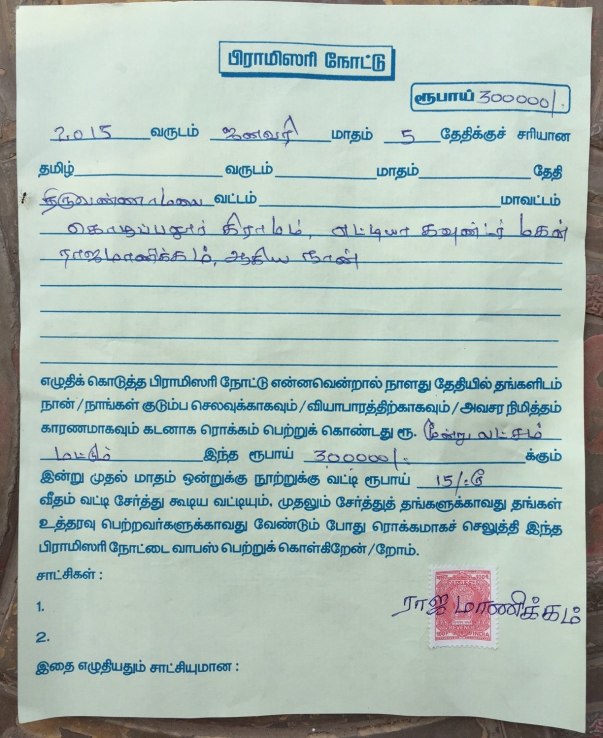 பிராமிஸரி நோட்டு
ரூபாய் 300000/-
2015 வருடம் ஜனவரி மாதம் 5 தேதிக்குச் சரியான
தமிழ் வருடம் மாதம் தேதி
திருவண்ணாமலை வட்டம் மாவட்டம்
கிராமம், எட்டியா கவுண்டர் மகன்
ராஜமாணிக்கம், ஆகிய நான்
எழுதிக் கொடுத்த பிராமிஸரி நோட்டு என்னவென்றால் நாளது தேதியில் தங்களிடம்
நான்/நாங்கள் குடும்ப செலவுக்காகவும்/வியாபாரத்திற்காகவும்/அவசர நிமித்தம்
காரணமாகவும் கடனாக ரொக்கம் பெற்றுக் கொண்டது ரூ. மூன்று லட்சம்
மட்டும் இந்த ரூபாய் 300000/- க்கும்
இன்று முதல் மாதம் ஒன்றுக்கு நூற்றுக்கு வட்டி ரூபாய் 15/-
வீதம் வட்டி சேர்த்து கூடிய வட்டியும், முதலும் சேர்த்துத் தங்களுக்காவது தங்கள்
உத்தரவு பெற்றவர்களுக்காவது வேண்டும் போது ரொக்கமாகச் செலுத்தி இந்த
பிராமிஸரி நோட்டை வாபஸ் பெற்றுக் கொள்கிறேன்/றோம்.
சாட்சிகள் :
1.
ராஜமாணிக்கம்
REVENUE
INDIA
2.
இதை எழுதியதும் சாட்சியுமான :